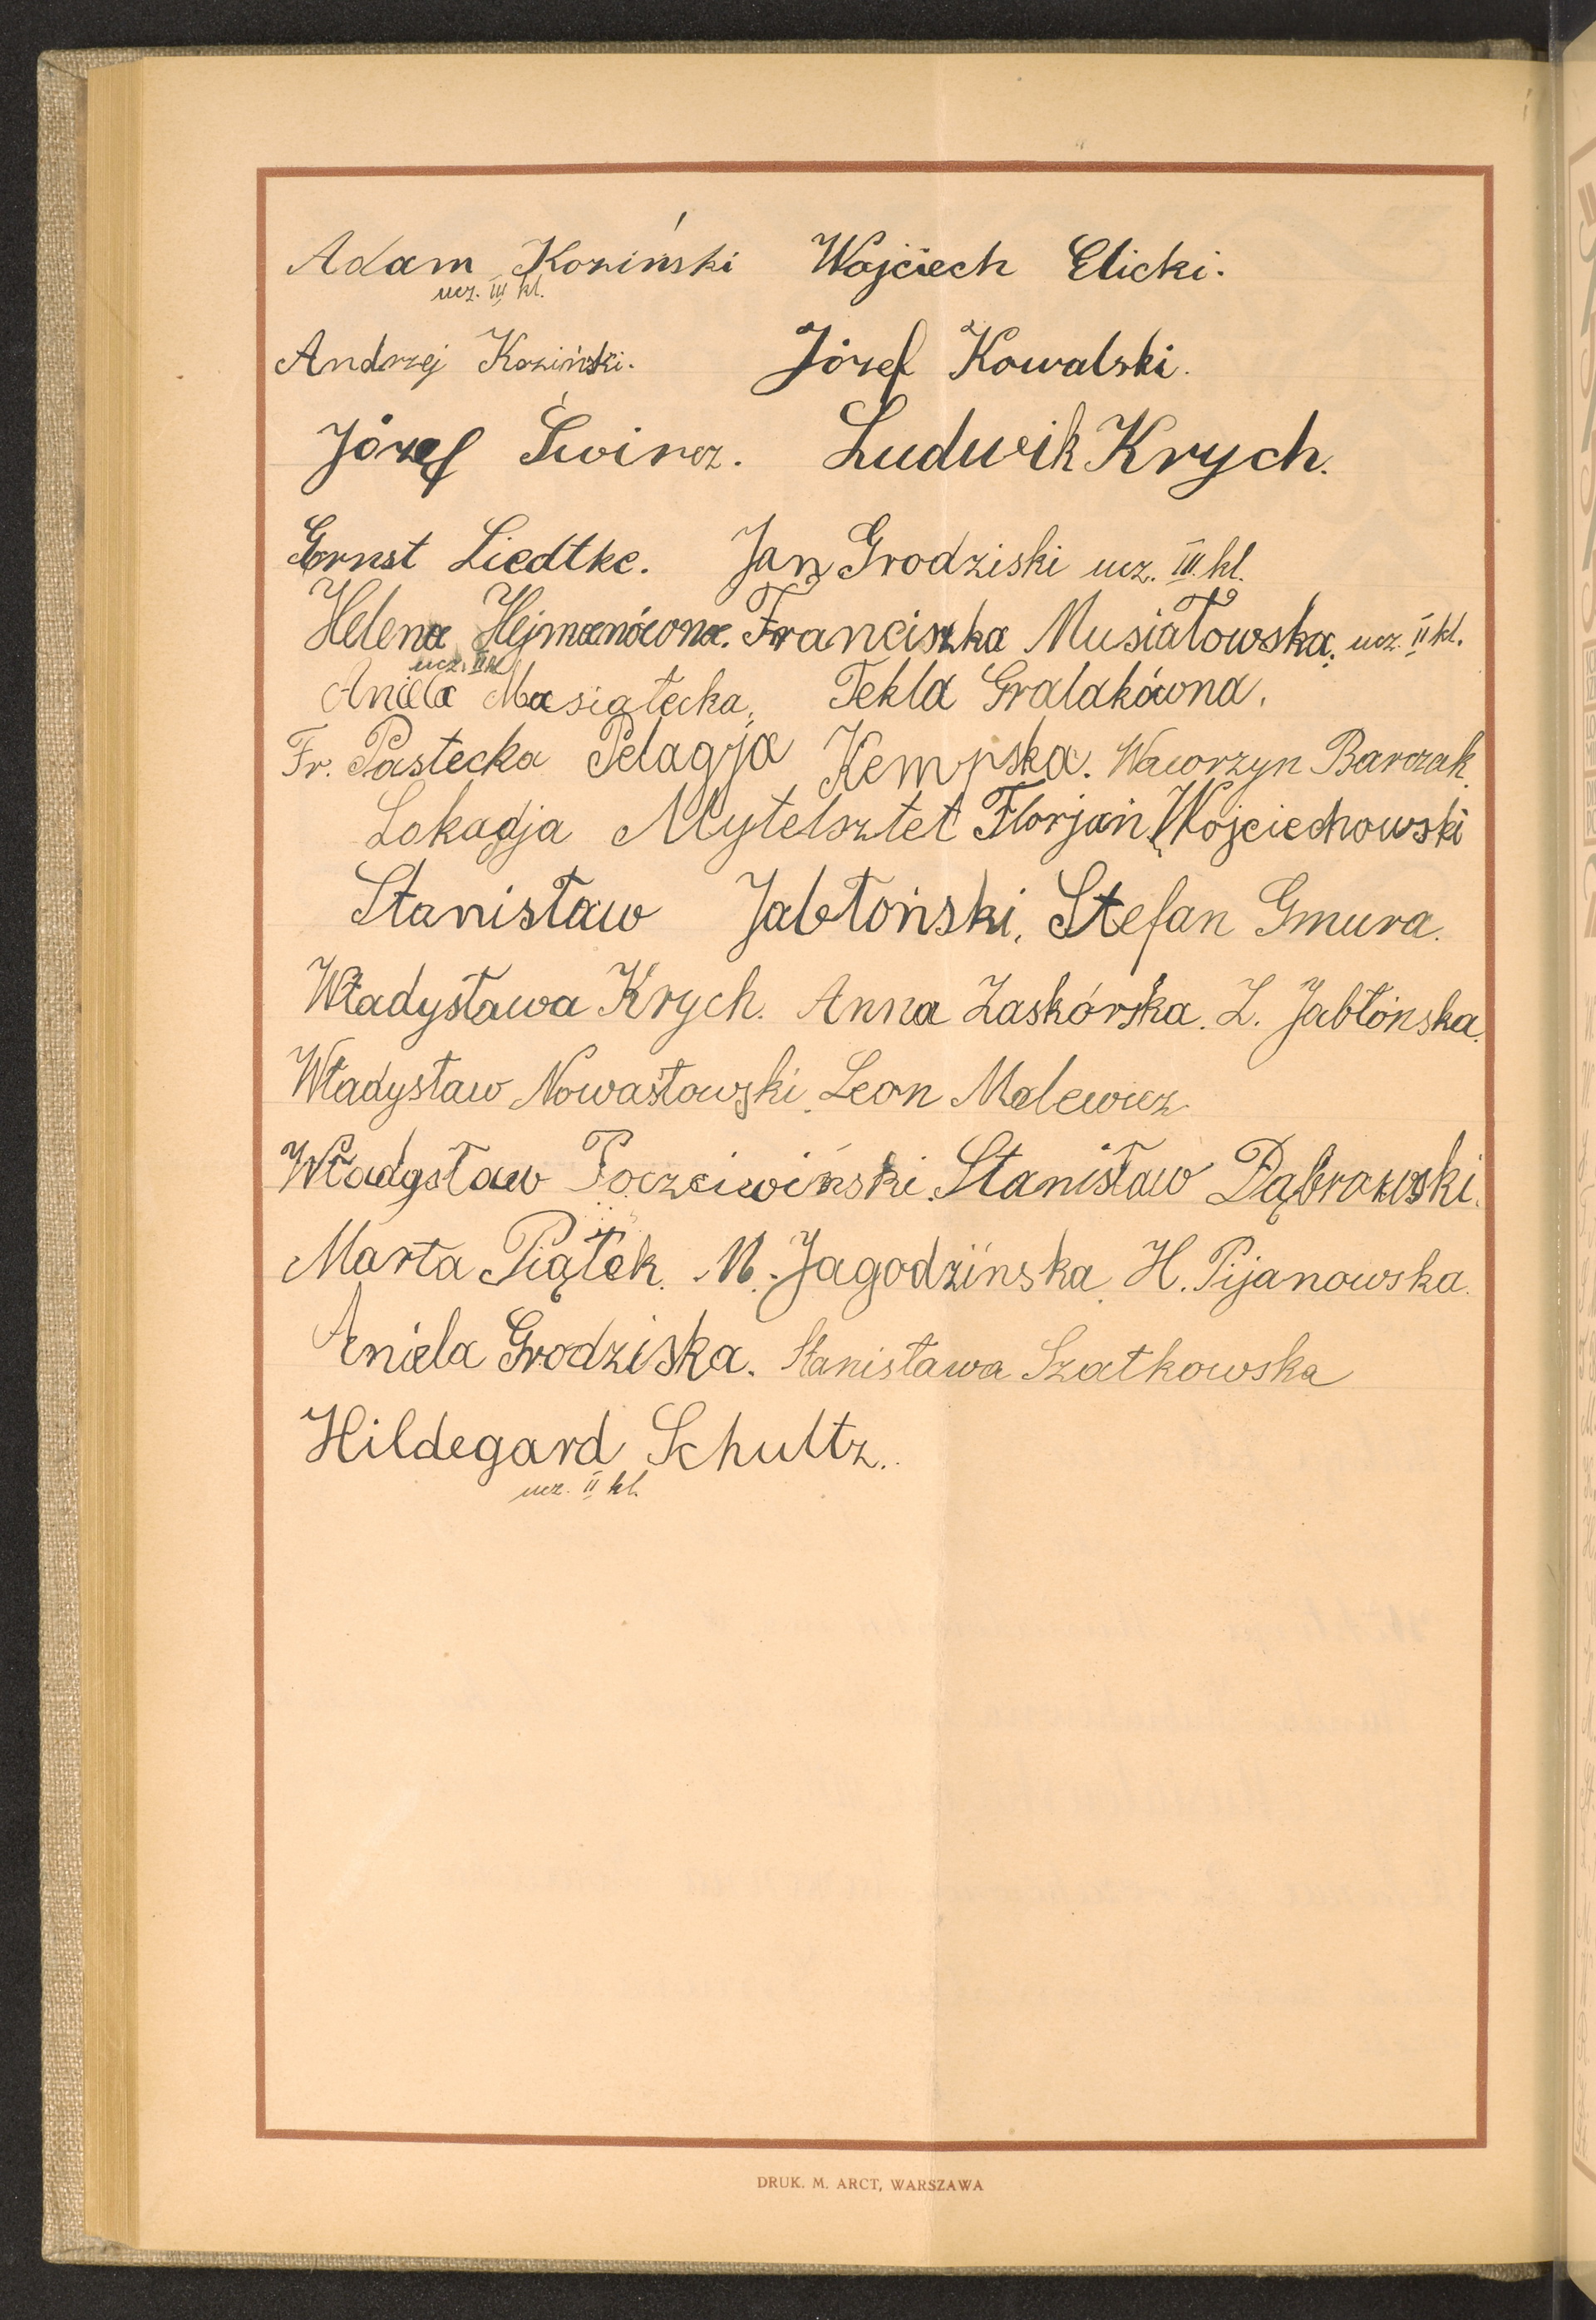 Adam Koziński Wojciech Elicki.
ucz. III kl.
Andrzej Koziński. Józef Kowalski.
Józef Śwircz. Ludwik Krych.
Ernst Liedtke. Jan Grodziski ucz. III. kl.
Helena Hejmanówna. Franciszka Musiałowska, ucz. II kl.
ucz. II kl
Aniela Masiałecka, Tekla Gralakówna.
Fr. Pastecka Pelagja Kempska. Wawrzyn Barczak.
Lokadja Mytelsztet Florjan Wojciechowski
Stanisław Jabłoński, Stefan Gmura.
Władysława Krych. Anna Zaskórska. Z. Jabłońska.
Władysław Nowasłowski, Leon Malewicz
Władysław Poczciwiński. Stanisław Dąbrowski.
Marta Piątek. M. Jagodzińska, H. Pijanowska.
Aniela Grodziska. Stanisława Szatkowska
Hildegard Schultz.
ucz. II kl.
DRUK. M. ARCT, WARSZAWA